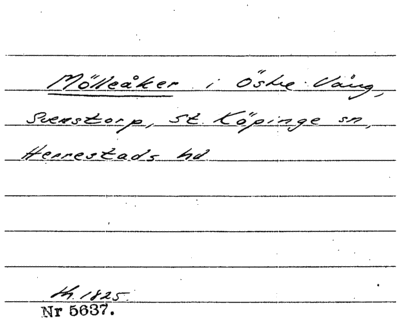 Mölleåker i Östre Vång,
Svenstorp, St. Köpinge sn,
Herrestads hd
th. 1825.
Nr 5637.